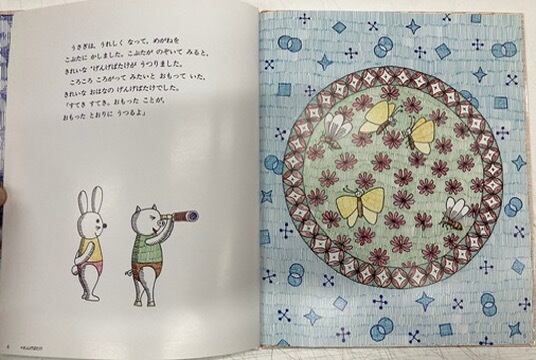 うさぎは、うれしく なって、めがねを
こぶたに かしました。こぶたが のぞいて みると、
きれいな *げんげばたけが うつりました。
ころころ ころがって みたいと おもって いた、
きれいな おはなの げんげばたけでした。
「すてき すてき。おもった ことが、
おもった とおりに うつるよ」